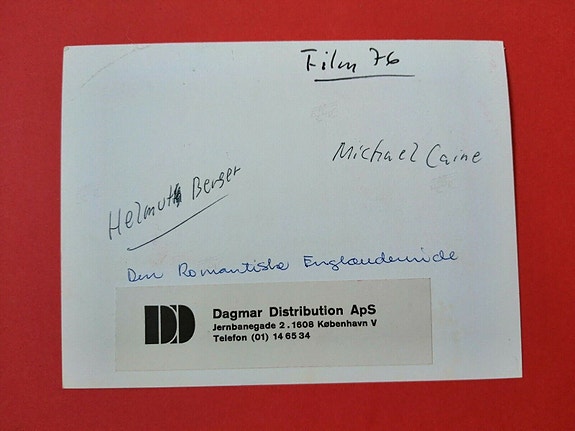 Film 76
Michael Caine
Helmuth Berger
Den Romantiske Englænderinde
DD
Dagmar Distribution ApS
Jernbanegade 2 . 1608 København V
Telefon (01) 14 65 34